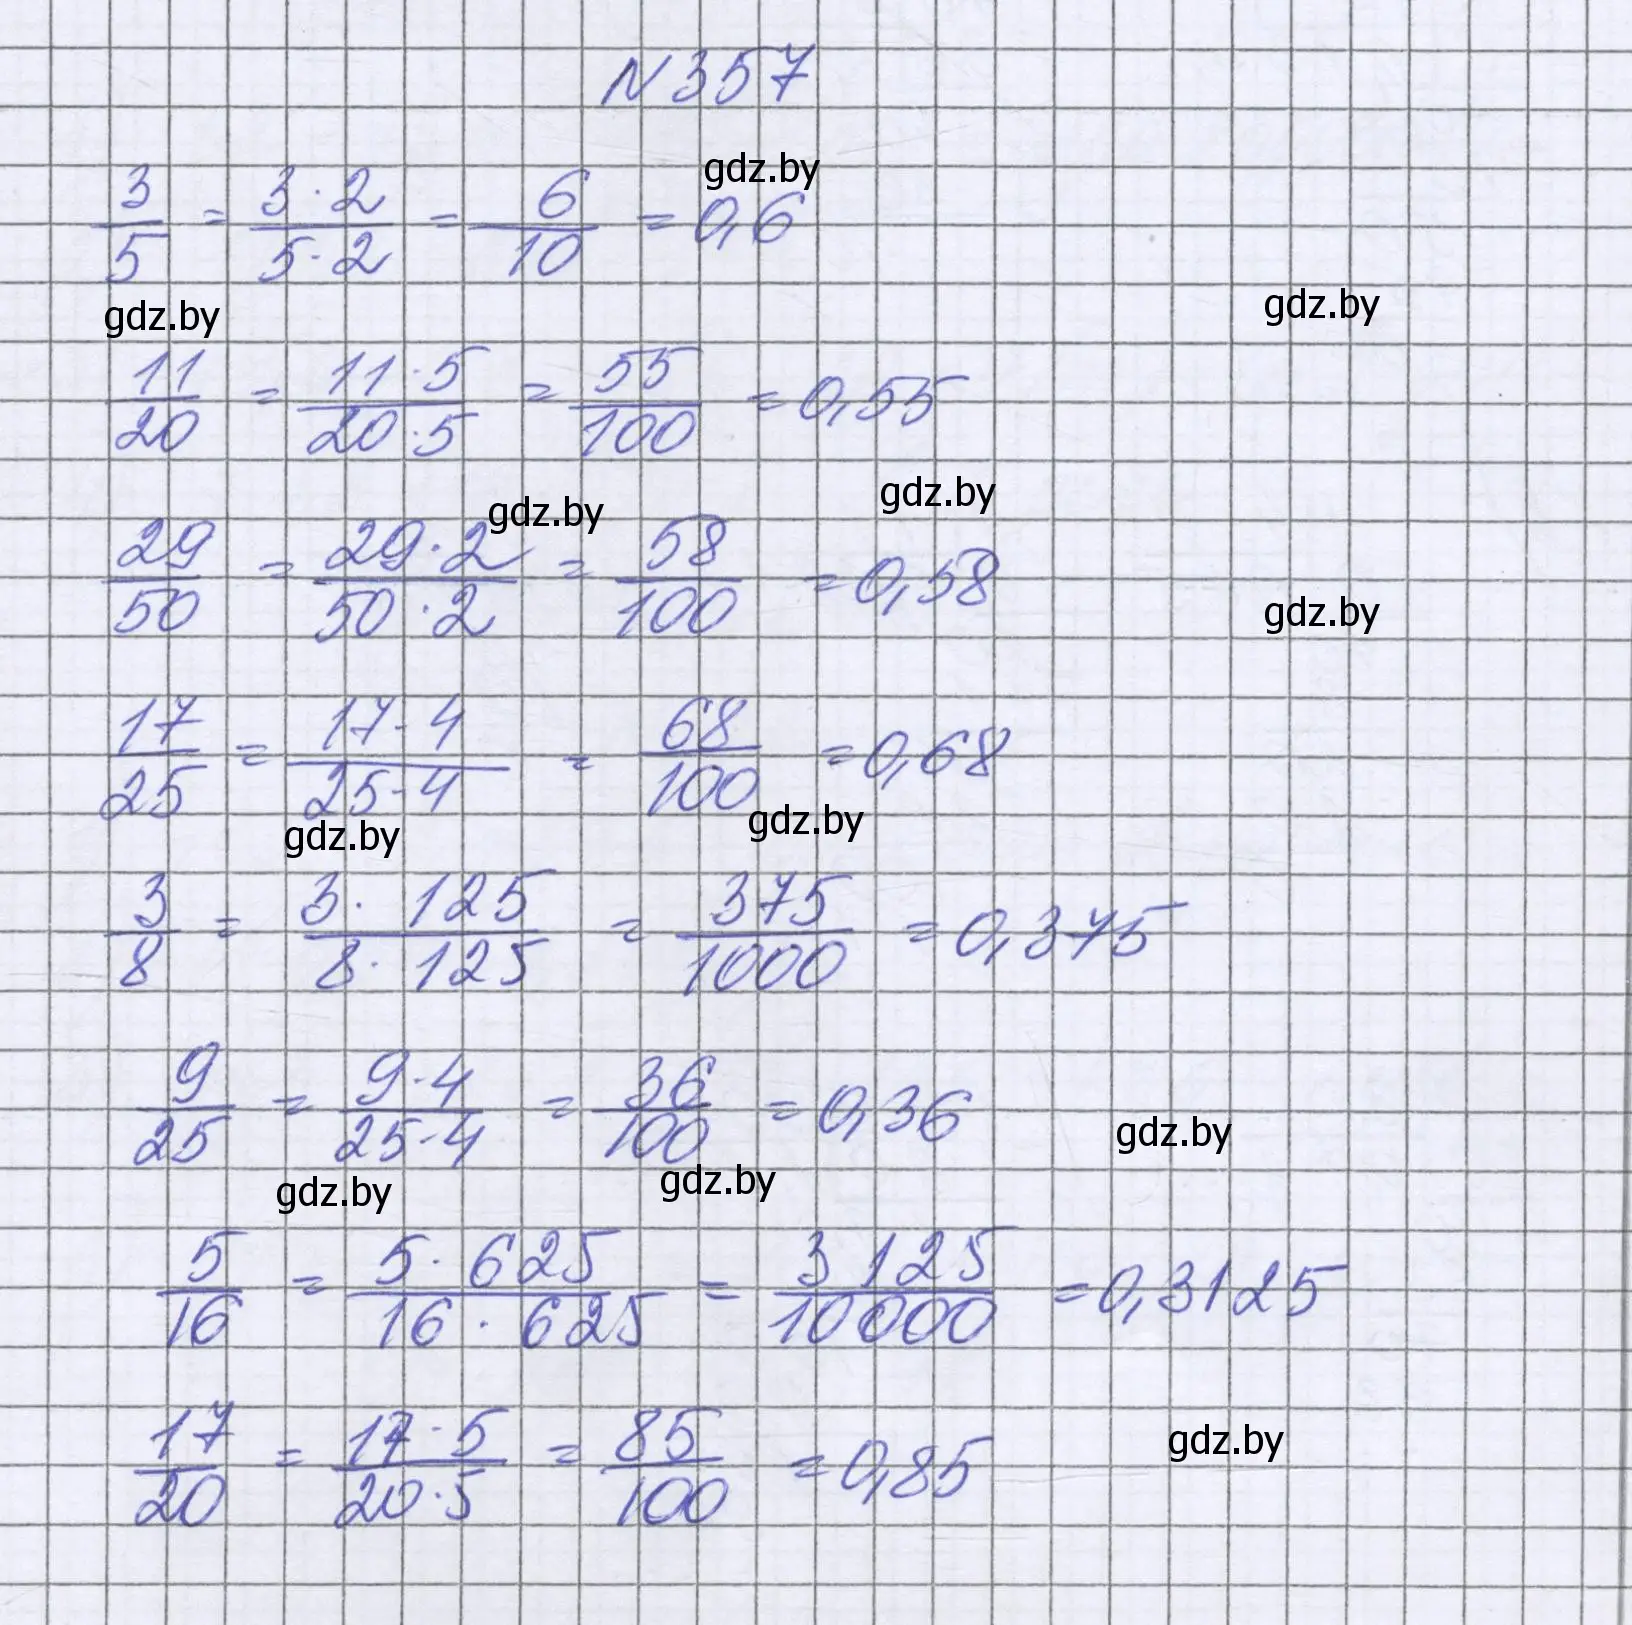 N 357
3/5 = 3·2/5·2 = 6/10 = 0,6
gdz.by
gdz.by
gdz.by
11/20 = 11·5/20·5 = 55/100 = 0,55
gdz.by
gdz.by
29/50 = 29·2/50·2 = 58/100 = 0,58
gdz.by
17/25 = 17·4/25·4 = 68/100 = 0,68
gdz.by
gdz.by
3/8 = 3·125/8·125 = 375/1000 = 0,375
9/25 = 9·4/25·4 = 36/100 = 0,36
gdz.by
gdz.by
gdz.by
5/16 = 5·625/16·625 = 3125/10000 = 0,3125
17/20 = 17·5/20·5 = 85/100 = 0,85
gdz.by